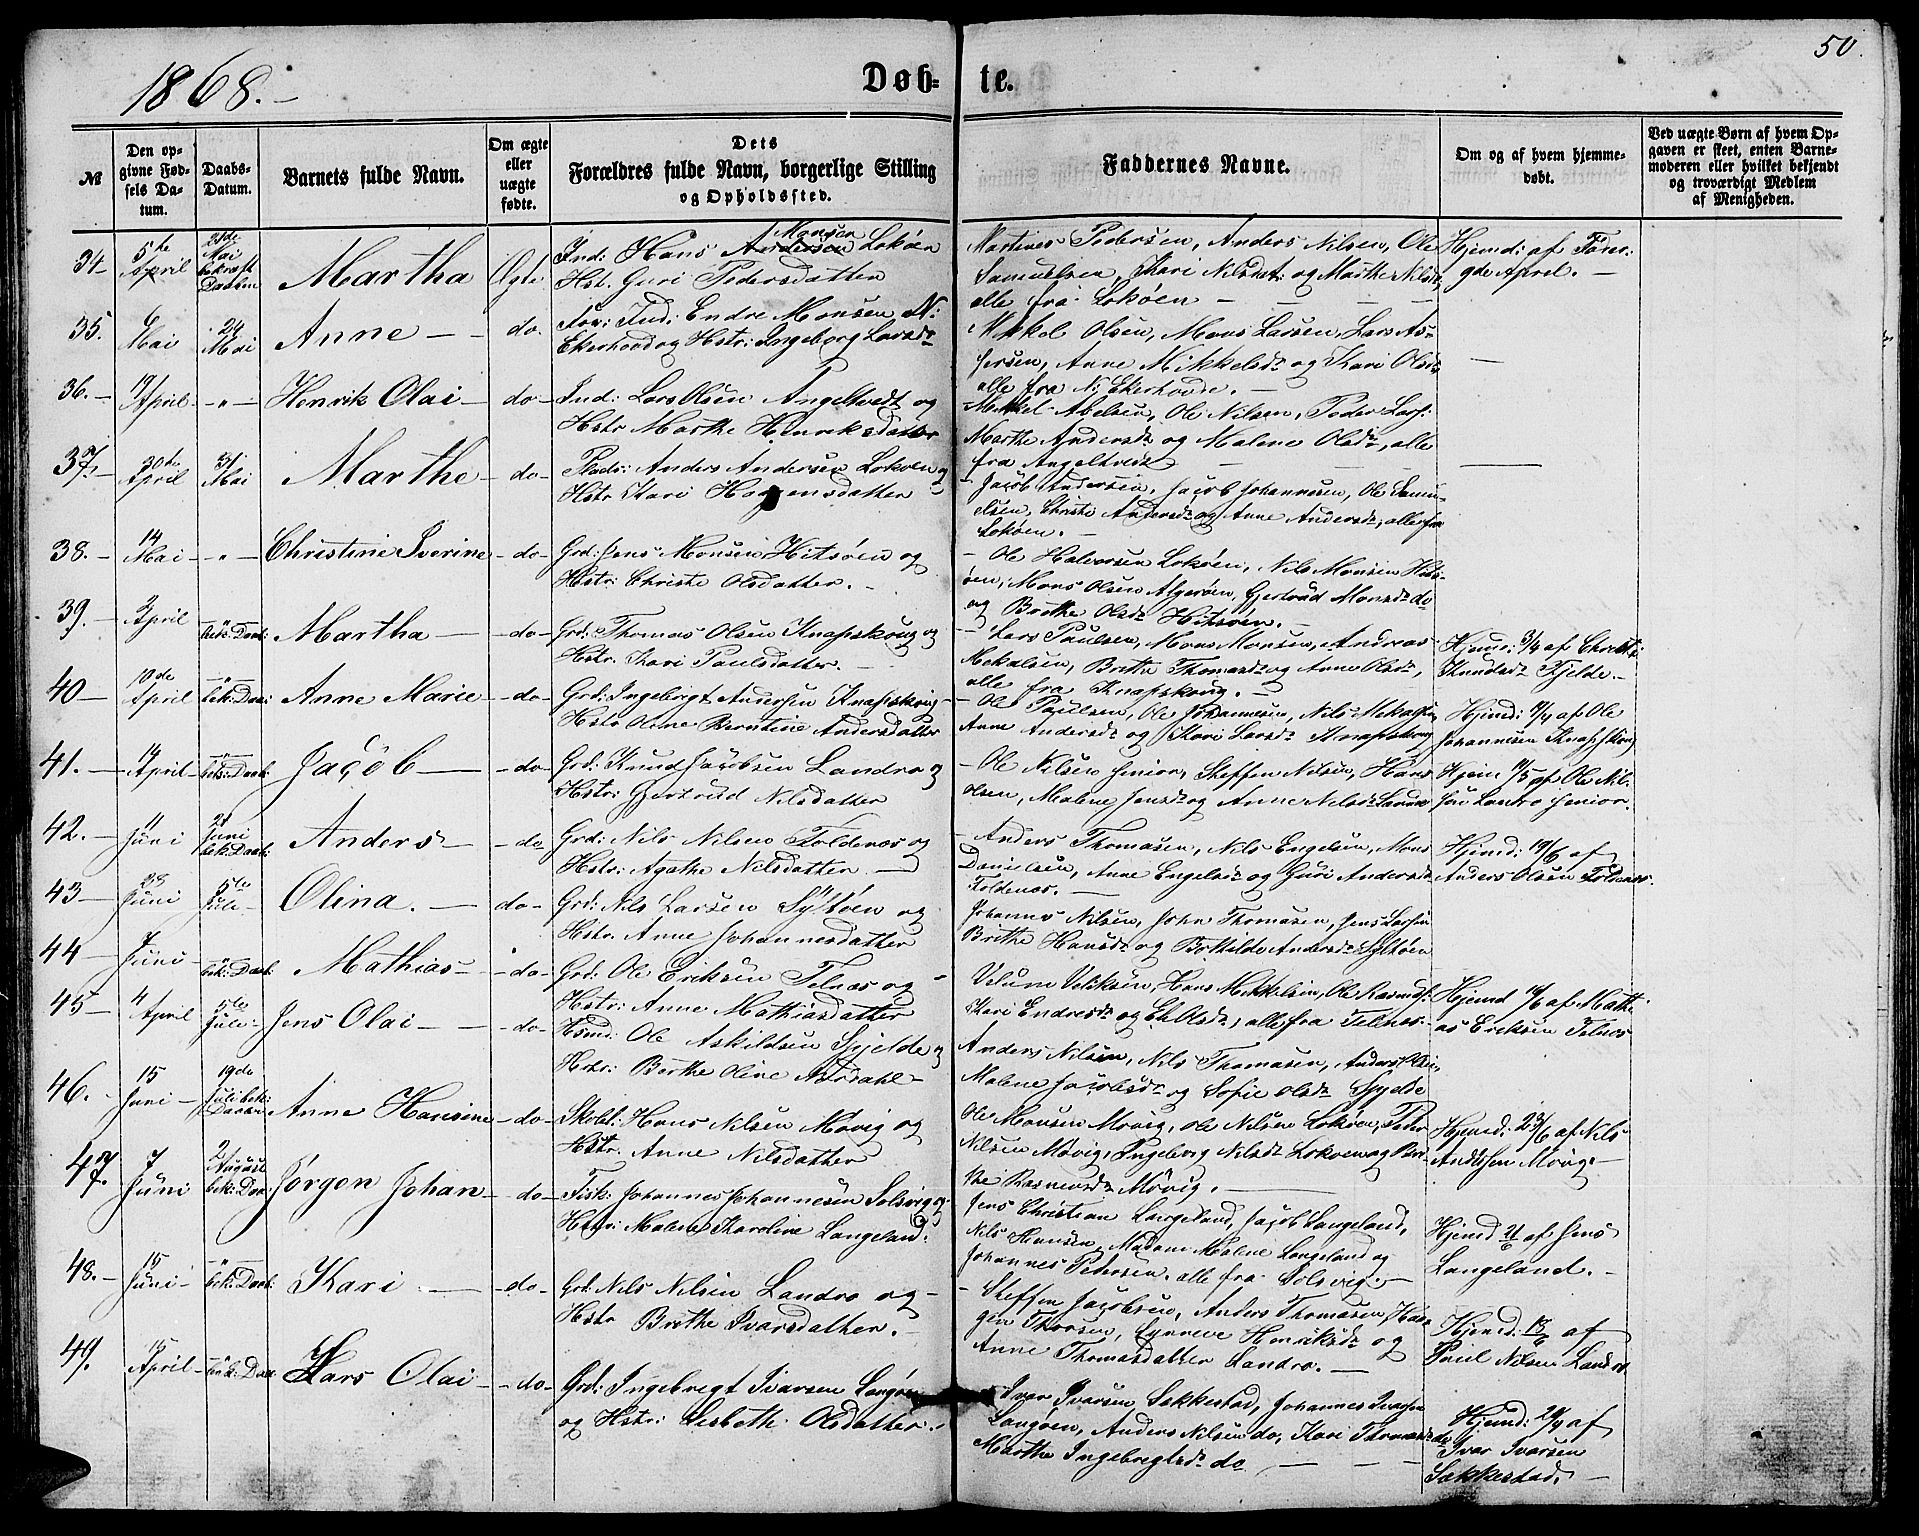 50.
1868.-
Døb-te.
№
Den op-
givne Fød-
sels Da-
tum.
Daabs-
Datum.
Barnets fulde Navn.
Om ægte
eller
uægte
fødte.
Dets
Forældres fulde Navn, borgerlige Stilling
og Opholdssted.
Faddernes Navne.
Om og af hvem hjemme-
døbt.
Ved uægte Børn af hvem Op-
gaven er skeet, enten Barne-
moderen eller hvilket bekjendt
og troværdigt Medlem
af Menigheden.
34- 5te April 21de Mai bekræft Daaben Martha Ægte
Ind: Hans Andersen Monsen Lokøen
Hst. Guri Pedersdatter
Martines Pedersen, Anders Nilsen, Ole
Samuelsen, Kari Nilsdat: og Marthe Nilsd
alle fra Lokøen
Hjemd: af
gde April. -
35. 6 Mai 24 Mai Anne - do.
Ind: Endre Monsen N:
Ekerhovd og Hstr: Ingeborg Larsdr
Mikkel Olsen, Mons Larsen, Lars As-
Anne Mikkelsdr og Kari Olsdr
alle fra N: Ekerhovde. -
36. - 19 April - " - Henrik Olai - do -
Ind: Lars Olsen Angeltvedt og
Hstr Marthe Henriksdatter
Mikkel Abelsen, Ole Nilsen, Peder Lars:
Marthe Andersdr og Malene Olsdr, alle
fra Angeltvedt
37. - 30te April 31 Mai Marthe - do -
Anders Andersen Lokøen og
Hstr Kari Hansdatter
Jacob Andersen, Jacob Johannesen, Ole Samu-
elsen, Christi Andersdr og Anne Andersdr, alle fra
Lokøen. -
38. - 14 Mai - " - Christine Iverine - do -
Grd: Jens Monsen Hitsøen og
Hstr: Christi Olsdatter. -
- Ole Halvorsen Lokøen, Nils Monsen Hits-
øen, Mons Olsen Algerøen, Gjertrud Monsdr do
og Brithe Olsdr Hitsøen. -
39. 3 April bek: Daab: Martha - do -
Grd: Thomas Olsen Knapskoug og
Hstr: Kari Paulsdatter. -
- Lars Paulsen, Mons Monsen, Andreas
Mekalsen, Brithe Thomasdr og Anne Olsdr,
alle fra Knapskoug. -
Hjemd: 3/4 af Christi:
Knudsdr Fjelde. -
40 - 10de April bek: Daab: Anne Marie - do -
Grd: Ingebrigt Andersen Knapskoug -
Hstr Oline Berntine Andersdatter
- Ole Paulsen, Ole Johannesen, Nils Mekalsen,
Anne Andersdr og Kari Larsdr Knapskoug
Hjemd: af Ole
Johannesen Knapskoug
41. - 14 April - bek: Daab: Jacob - do -
Grd: Knud Jacobsen Landro og
Hstr: Gjertrud Nilsdatter
- Ole Nilsen Senior, Steffen Nilsen, Hans
Olsen, Malene Jensdr og Anne Nilsdr Landro
Hjem af Ole Nil-
sen Landro Senior.
42. - 11 Juni 21 Juni bek: Daab: Anders - do -
Grd: Nils Nilsen Foldenæs og
Hstr: Agathe Nilsdatter. -
- Anders Thomasen, Nils Engelsen, Mons
Danielsen, Anne Engelsdr og Guri Andersdr
Foldenæs. -
Hjemd: 19/6 af
Anders Olsen Foldenæs.
43 - 28 Juni 5te Juli - Olina. - do -
Grd: Nils Larsen Syltøen og
Hstr: Anne Johannesdatter
Johannes Nilsen, John Thomasen, Jens Larsen
Brithe Hansdr og Bothilde Andersdr Syltøen
44 - 7 Juni - bek: Daab: Mathias - do -
Grd: Ole Eriksen Telnæs og
Hstr: Anne Mathiasdatter
Hans Mikkelsen, Ole Rasmus:
Kari Endresdr og Eli Olsdr, alle fra Telnæs.
Hjemd af Mathi-
as Eriksen Telnæs
45 - 4 April 5te Juli - Jens Olai - do -
Hsmd: Ole Askildsen Spjelde og
Hstr: Berthe Oline Nordahl -
Anders Nilsen, Nils Thomasen, Anders
Malene Jacobsdr og Sofie Olsdr Spjelde
46. - 15 Juni - 19de Juli bek: Daaben Anne Hansine - do -
Skoll: Hans Nilsen Møvig og
Hstr: Anne Nilsdatter
Ole Monsen Møvig, Ole Nilsen Lokøen, Peder
Nilsen Møvig, Ingeborg Nilsdr Lokøen og Ber-
the Rasmusdr Møvig. -
Hjemd: 23/6 af Nils
Andersen Møvig. -
47. 7 Juni 2/ August bek: Daab Jørgen Johan - do -
Fisk: Johannes Johannesen Solsvig og
Hstr: Malene Karoline Langeland.
Jens Christian Langeland, Jacob Langeland,
Nils Hansen, Madam Malene Langeland og
Johannes Petersen, alle fra Solsvig. -
Hjemd 21/6 af Jens
Langeland. -
48. - 15 Juni - bek: Daab: Kari - do -
Grd: Nils Nilsen Landro og -
Hstr Brithe Ivarsdatter. -
- Steffen Jacobsen, Anders Thomasen, Haa-
gen Thorsen, Synneve Henriksdr og
Anne Thomasdatter Landro. -
Hjemd: af
Poul Nilsen Landro
49. 15 April - bek: Daab Lars Olai - do -
Grd: Ingebregt Ivarsen Langøen
og Hstr: Lisbeth Olsdatter. -
Ivar Ivarsen Sekkestad, Johannes Ivarsen
Langøen, Anders Nilsen do, Kari Thomasdr do
Marthe Ingebregtsdr do
Hjemd: af
Ivar Ivarsen
Sekkestad. -